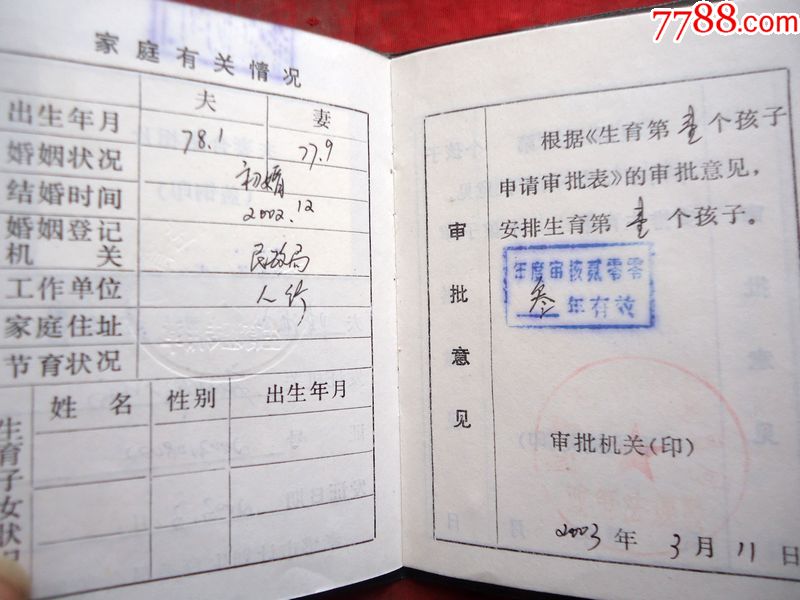 7788.com
家庭有关情况
夫 妻
出生年月 78.1 77.9
婚姻状况 初婚
结婚时间 2002.12
婚姻登记
机关 民政局
工作单位 人行
家庭住址
节育状况
姓名 性别 出生年月
生育子女状况
审批意见
根据《生育第壹个孩子
申请审批表》的审批意见,
安排生育第壹个孩子。
年度审核贰零零
叁年有效
审批机关(印)
2003年3月11日